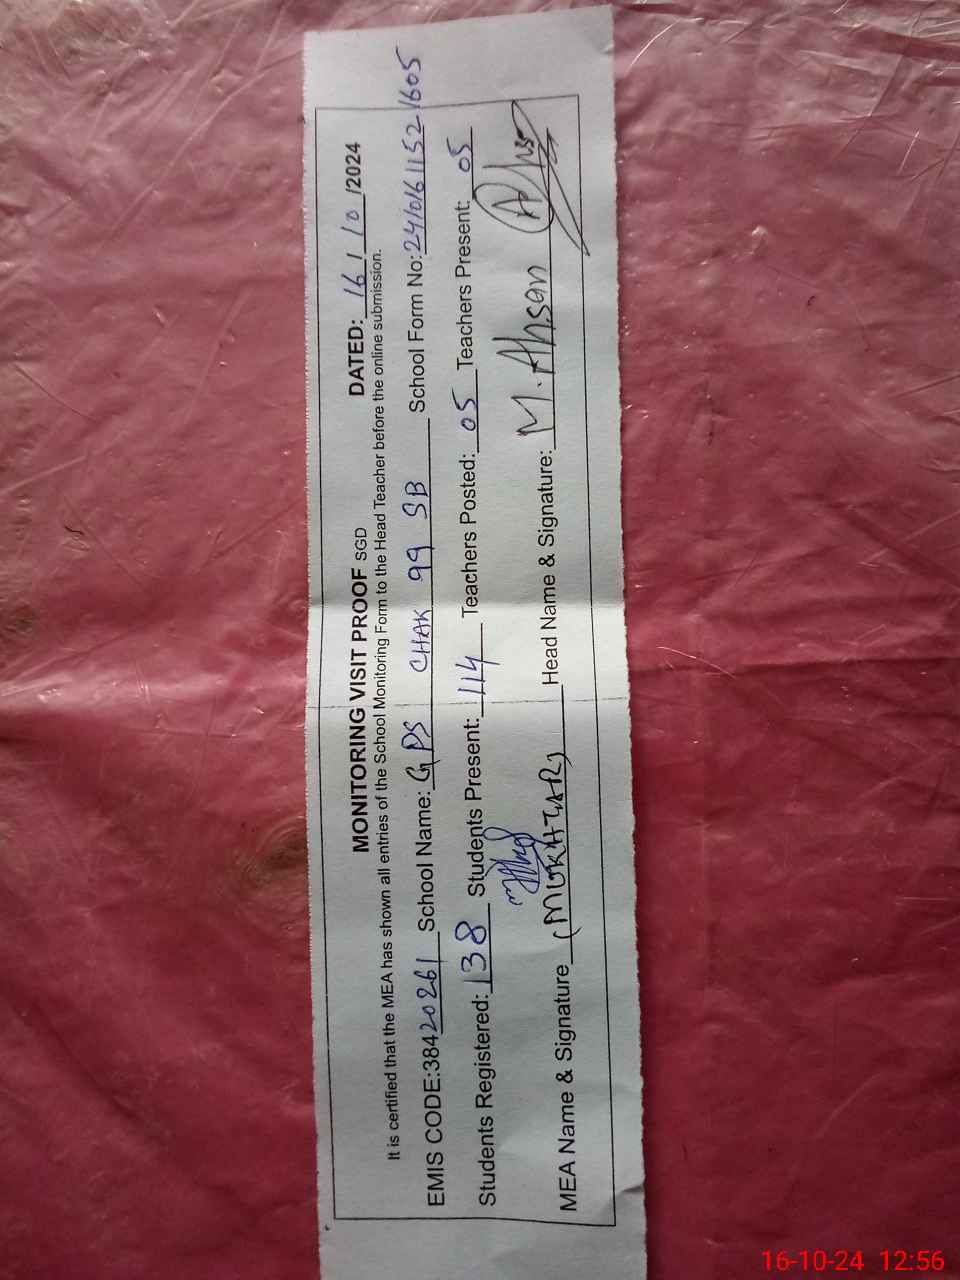 MONITORING VISIT PROOF SGD DATED: 16 / 10 /2024
It is certified that the MEA has shown all entries of the School Monitoring Form to the Head Teacher before the online submission.
EMIS CODE:38420261 School Name: GPS CHAK 99 SB School Form No: 2410161152 1605
Students Registered: 138 Students Present: 114 Teachers Posted: 05 Teachers Present: 05
MEA Name & Signature (MUKHTAR) Head Name & Signature: M. Ahsan
16-10-24 12:56